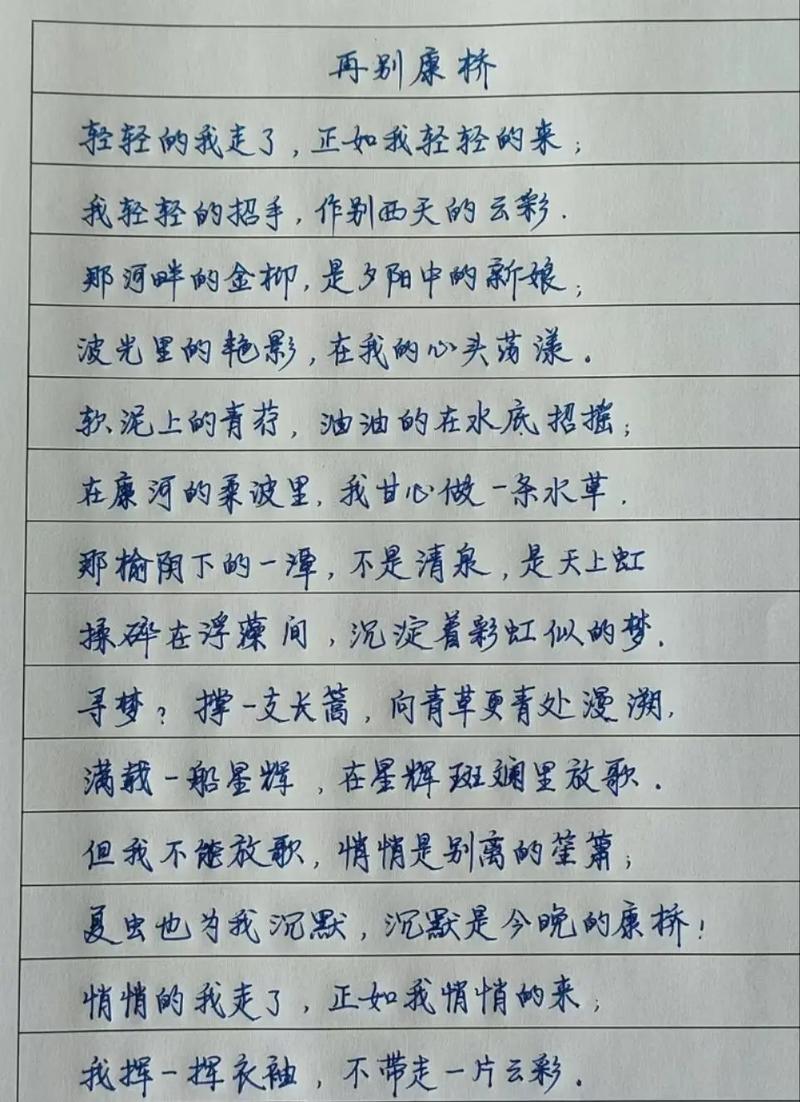 再别康桥
轻轻的我走了,正如我轻轻的来;
我轻轻的招手,作别西天的云彩.
那河畔的金柳,是夕阳中的新娘;
波光里的艳影,在我的心头荡漾.
软泥上的青荇,油油的在水底招摇;
在康河的柔波里,我甘心做一条水草.
那榆阴下的一潭,不是清泉,是天上虹
揉碎在浮藻间,沉淀着彩虹似的梦.
寻梦?撑一支长篙,向青草更青处漫溯,
满载一船星辉,在星辉斑斓里放歌.
但我不能放歌,悄悄是别离的笙箫;
夏虫也为我沉默,沉默是今晚的康桥!
悄悄的我走了,正如我悄悄的来;
我挥一挥衣袖,不带走一片云彩.